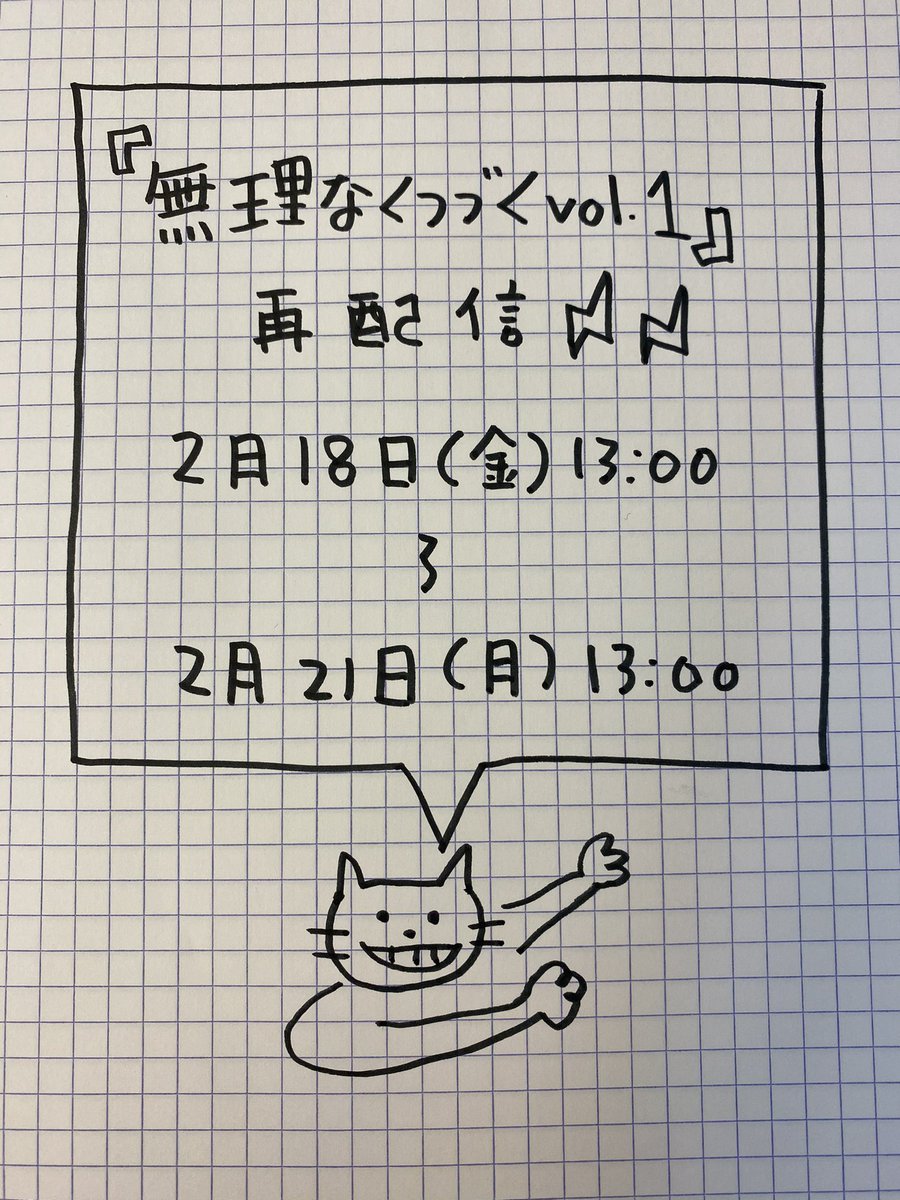 『無理なくつづくvol.1』
再配信⚡⚡
2月18日(金)13:00
〜
2月21日(月)13:00